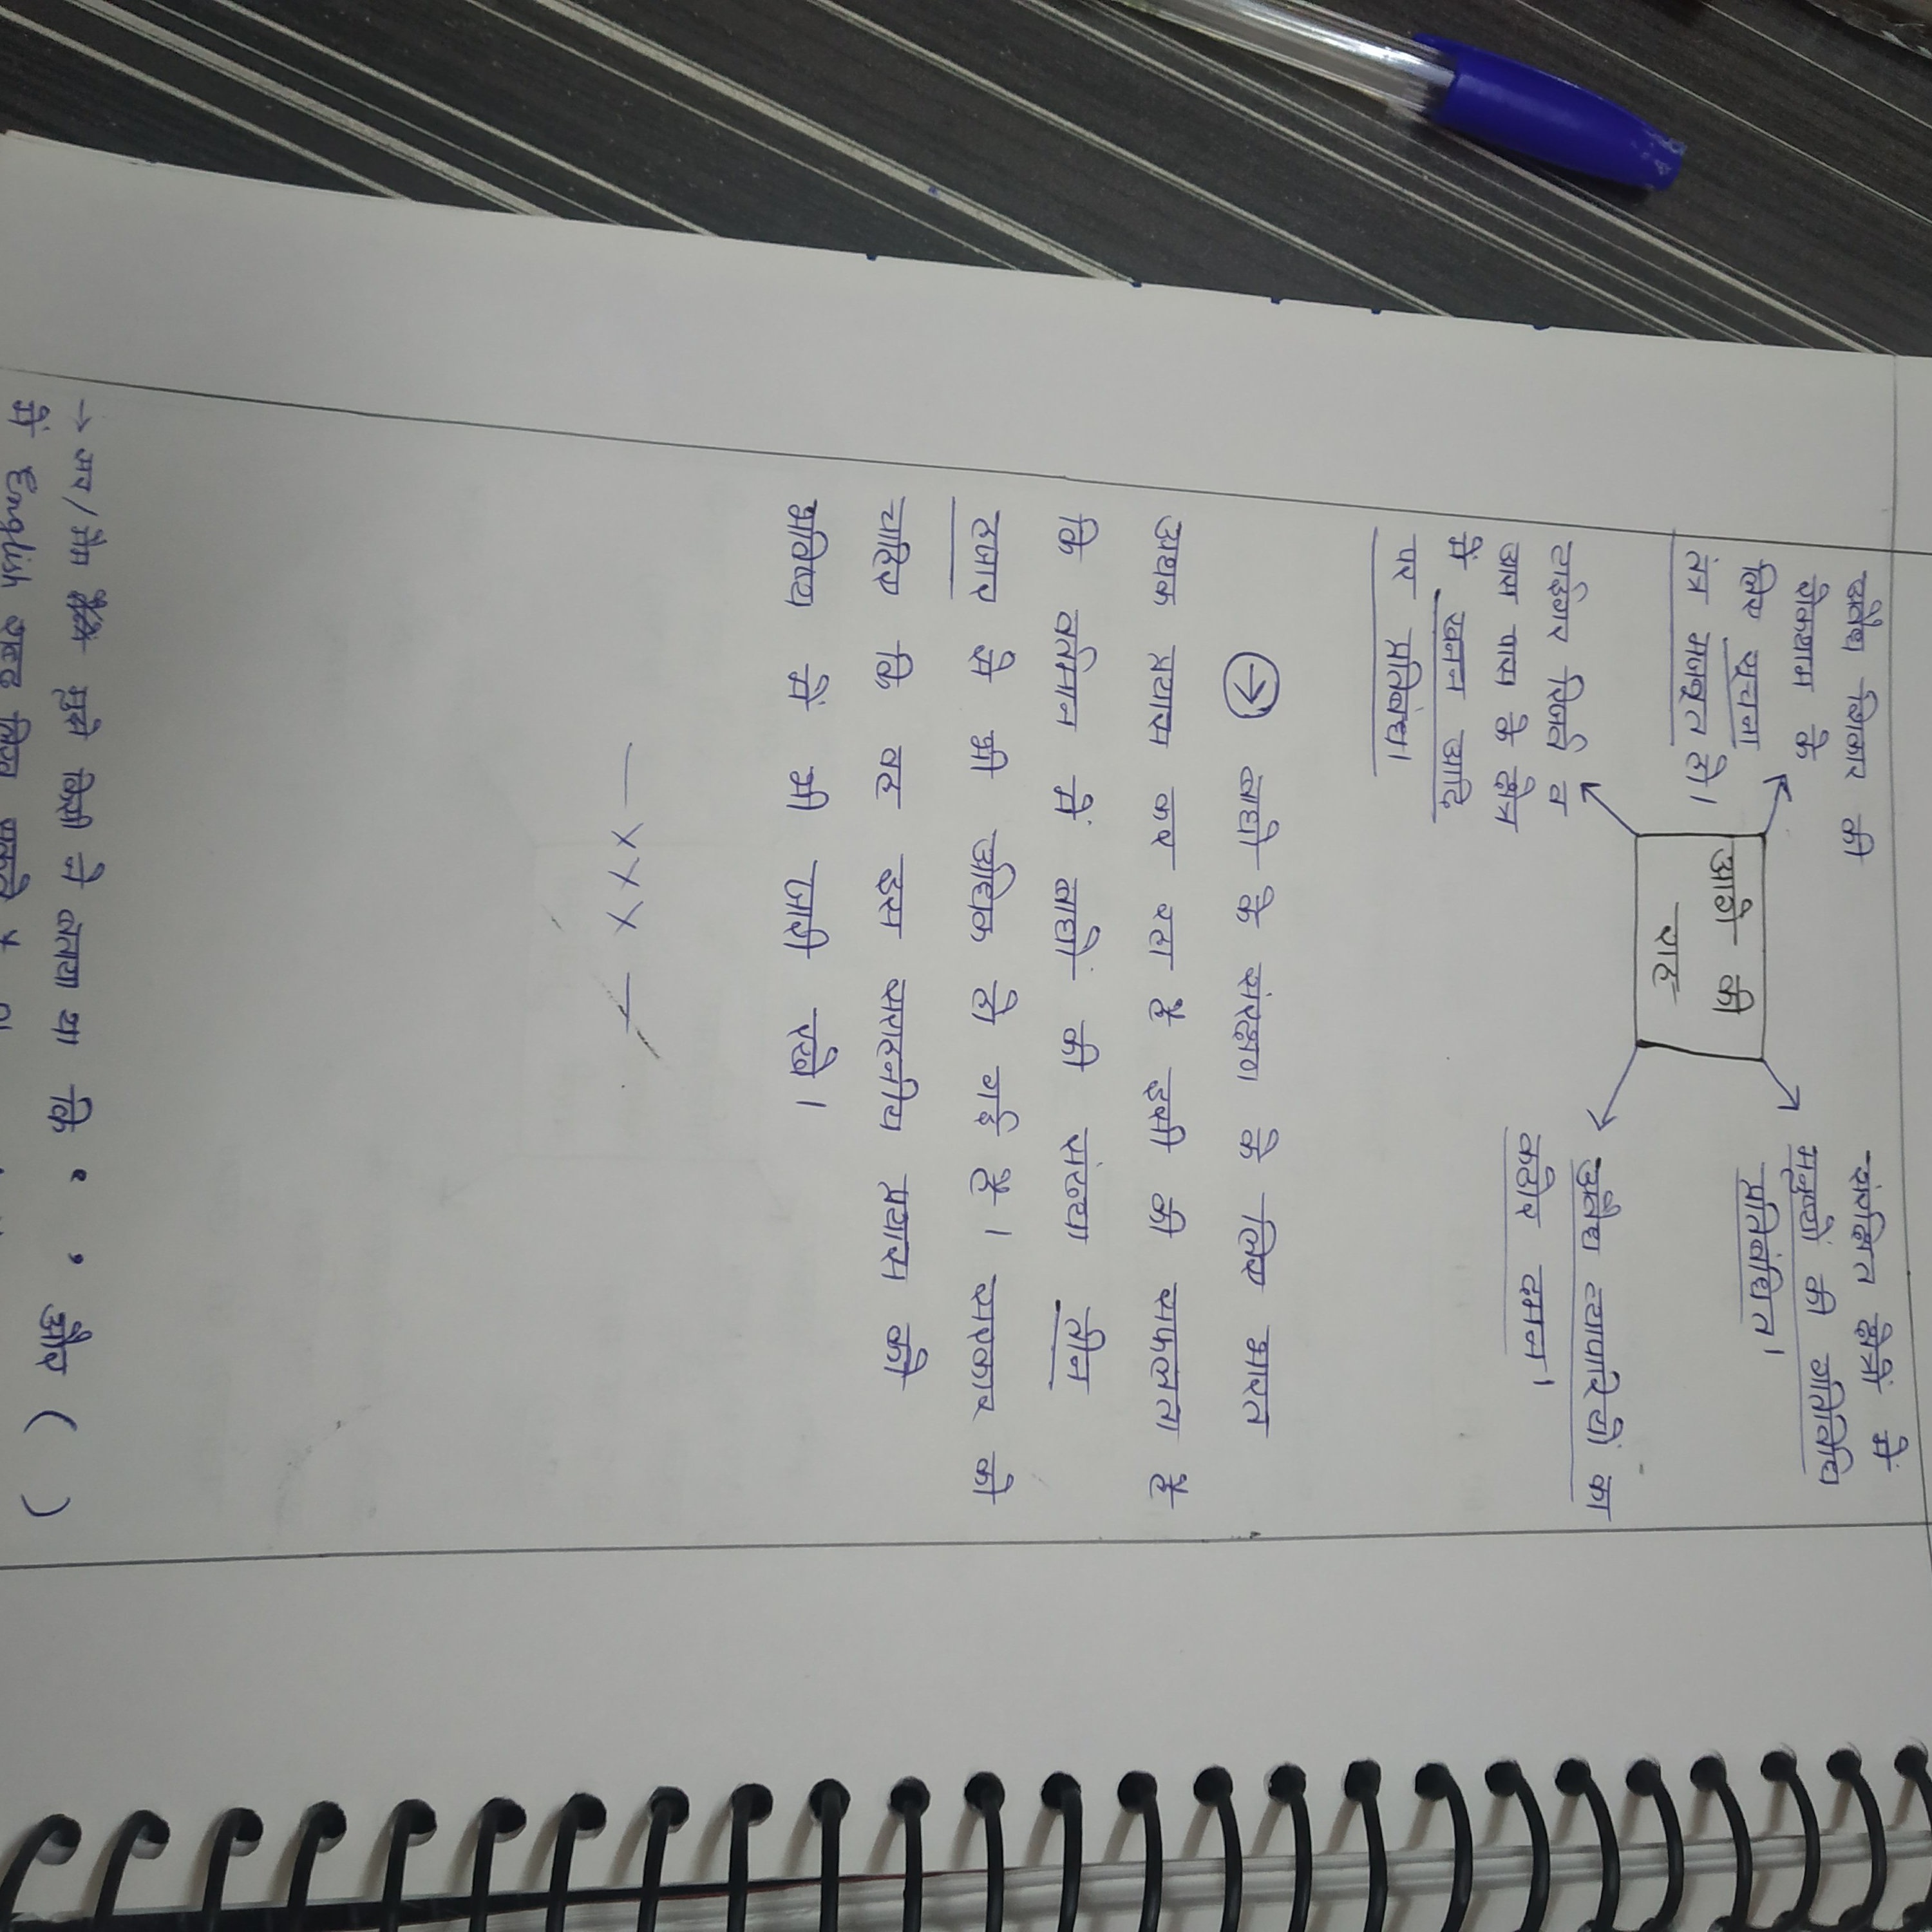 अवैध शिकार की
रोकथाम के
लिए सूचना
तंत्र मजबूत हो।
संरक्षित क्षेत्रों में
मनुष्यों की गतिविधि
प्रतिबंधित।
आगे की
राह
टाईगर रिजर्व व
आस पास के क्षेत्र
में खनन आदि
पर प्रतिबंध।
अवैध व्यापारियों का
कठोर दमन।
→ बाघों के संरक्षण के लिए भारत
अथक प्रयास कर रहा है इसी की सफलता है
कि वर्तमान में बाघों की संख्या तीन
हजार से भी अधिक हो गई है। सरकार को
चाहिए कि वह इस सराहनीय प्रयास को
भविष्य में भी जारी रखे।
— x x x —
→ सर/मैम मुझे किसी ने बताया था कि ' ' और ( )
में English शब्द लिख सकते